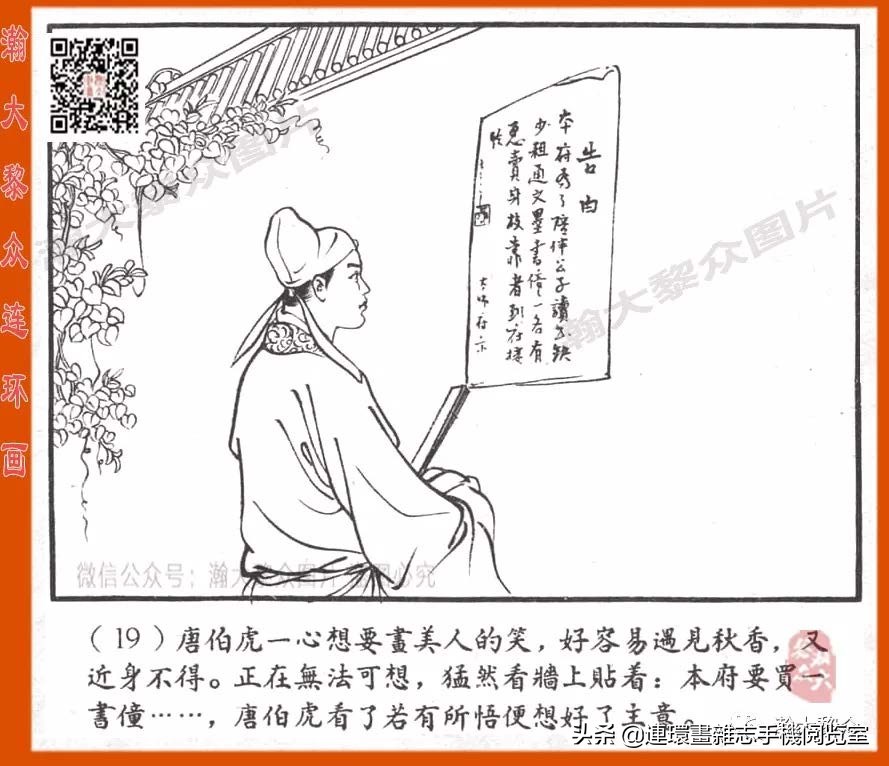 瀚大黎众连环画
告白
本府為了陪伴公子讀書缺
少粗通文墨書僮一名有
意賣身投靠者到府接
洽
太師府示
瀚大黎众图片
瀚大黎众图片
微信公众号：瀚大黎众图片 图必究
（19）唐伯虎一心想要畫美人的笑，好容易遇見秋香，又
近身不得。正在無法可想，猛然看牆上貼着：本府要買一
書僮……，唐伯虎看了若有所悟便想好了主意。
头条 @連環畫雜志手機閱览室